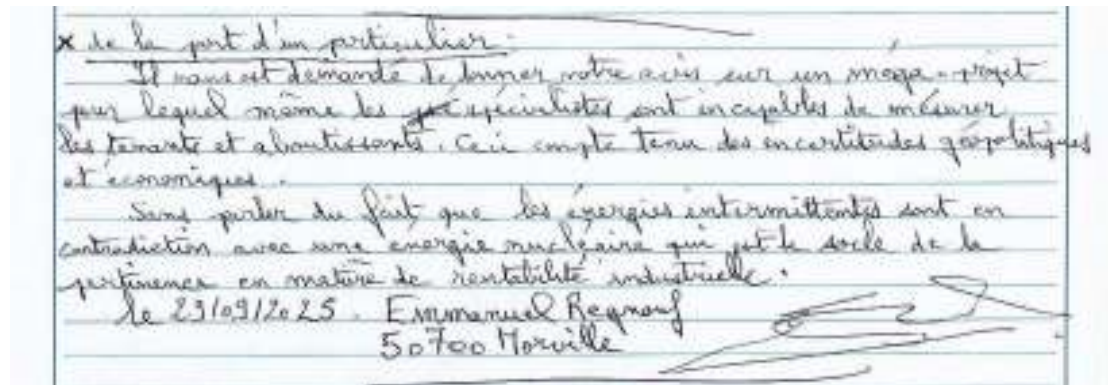 x de la part d'un particulier.
Il nous est demandé de donner notre avis sur un méga-projet
pour lequel même les spécialistes sont incapables de mesurer
les tenants et aboutissants. Ceci compte tenu des incertitudes géopolitiques
et économiques.
Sans parler du fait que les énergies intermittentes sont en
contradiction avec une énergie nucléaire qui est le socle de la
pertinence en matière de rentabilité industrielle.
le 23/09/2025. Emmanuel
50700 Morville